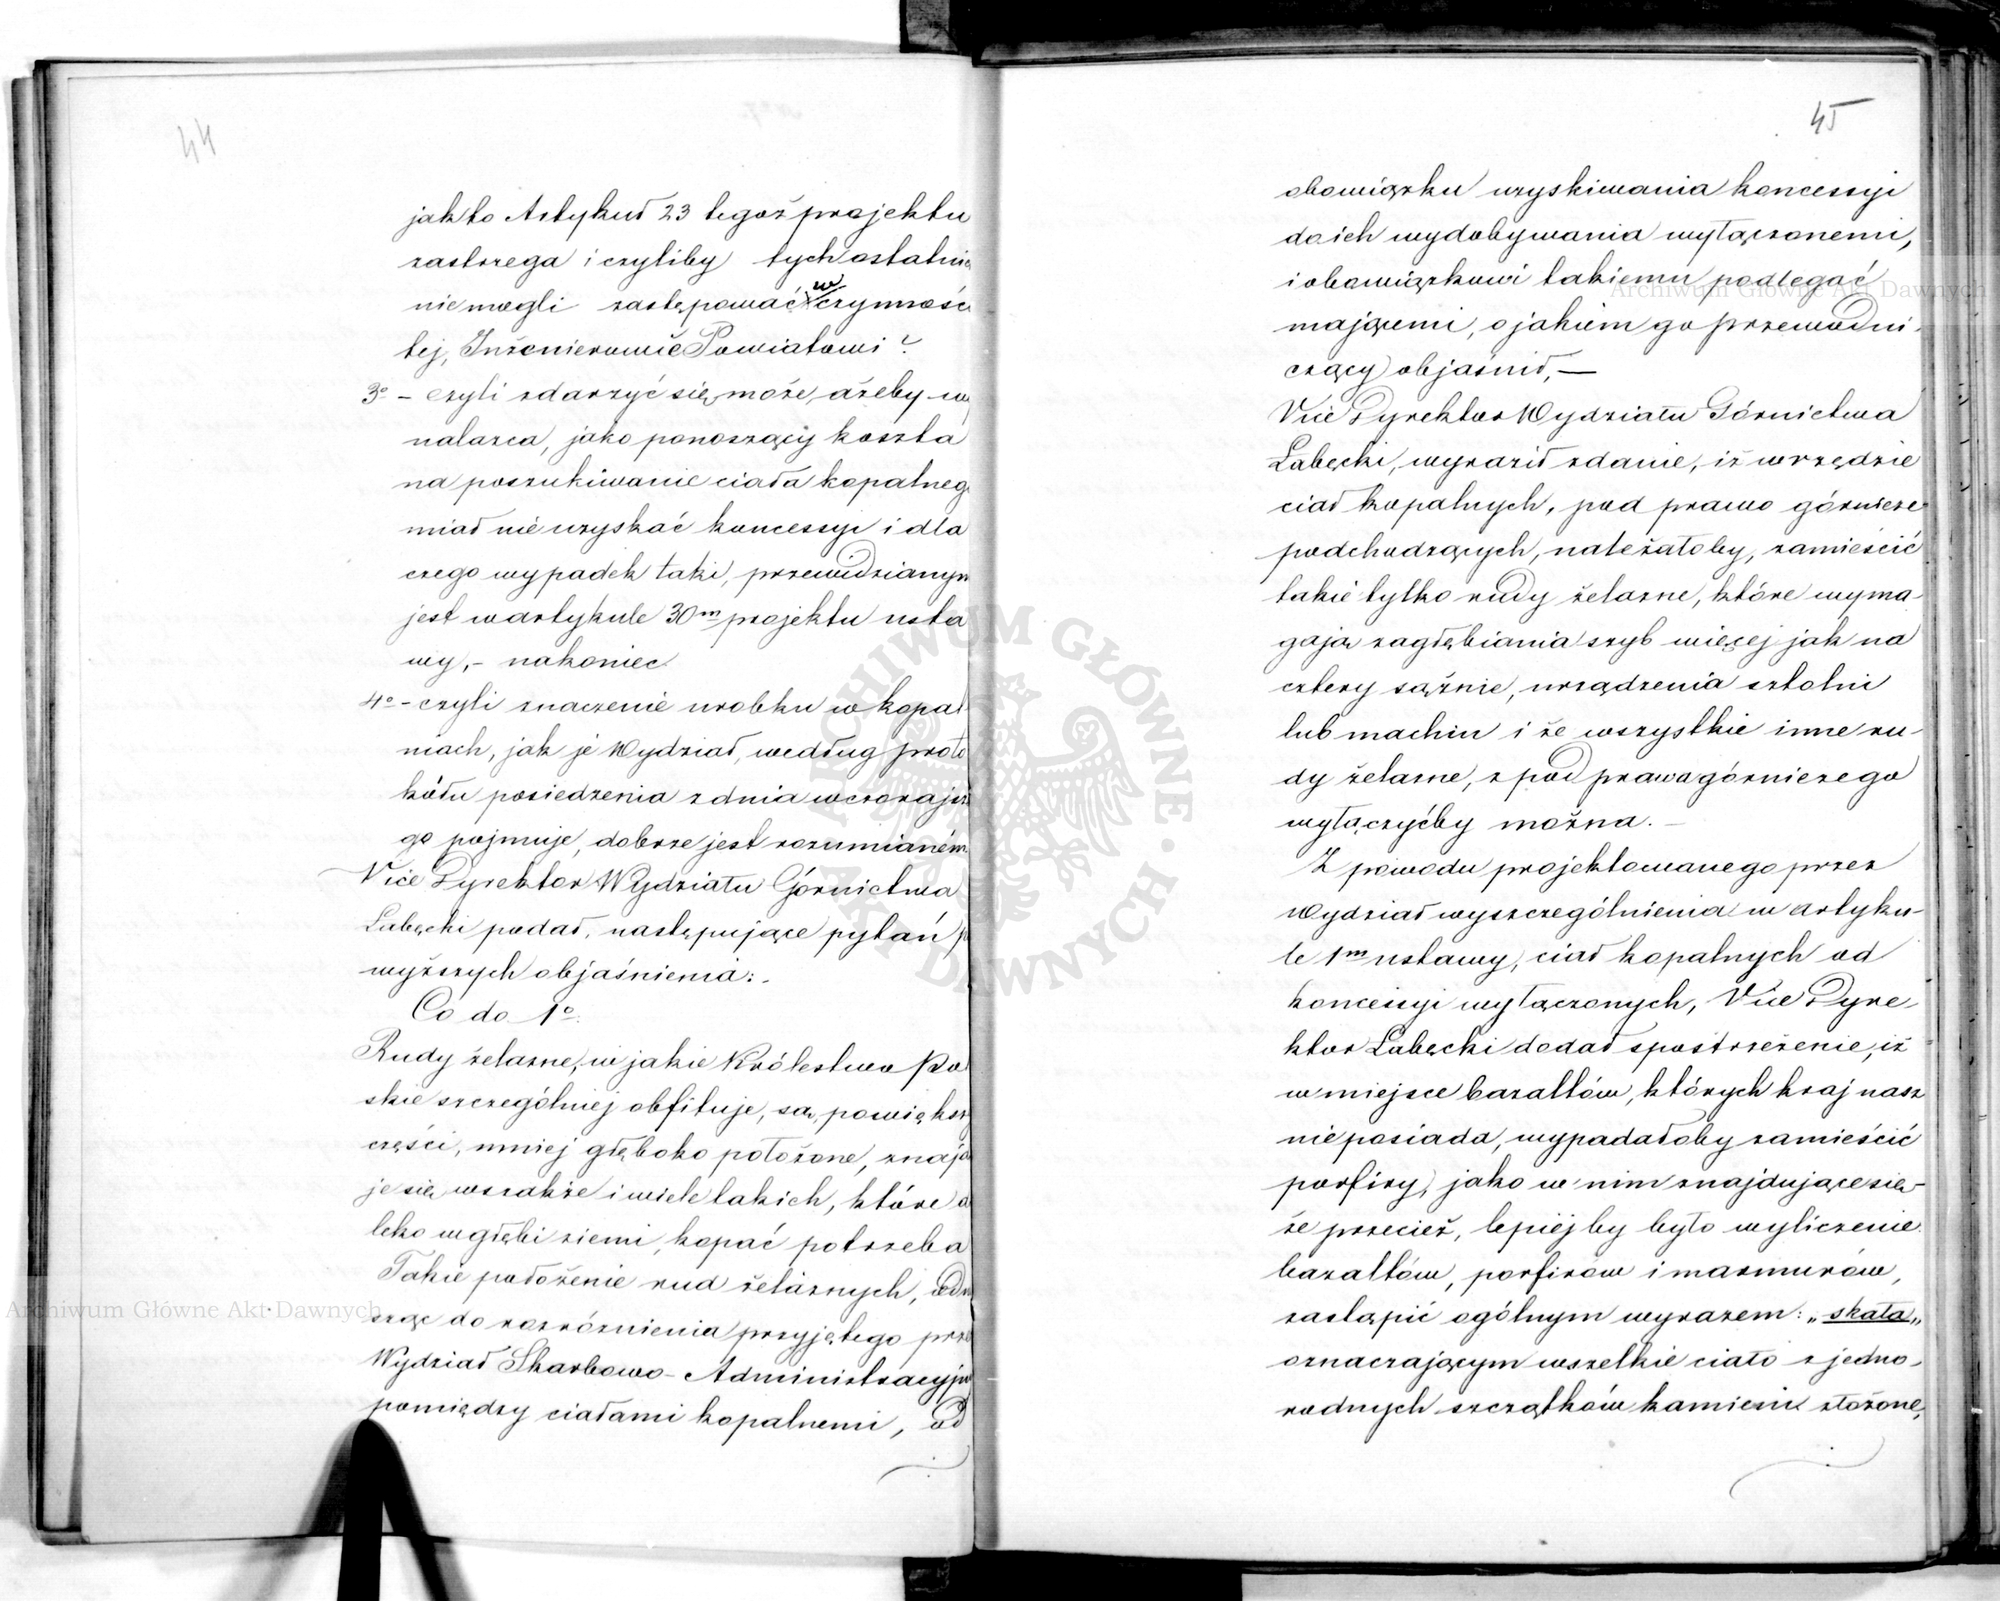 44
jak to Artykuł 23 tegoż projektu
zastrzega i czyliby tych ostatnic
nie mogli zastępować w czynnośc
tej, Inżenierowie Powiatowi?
3o – czyli zdarzyć się może, ażeby wy
nalazca, jako ponoszący koszta
na poszukiwanie ciała kopalneg
miał nie uzyskać koncessyi i dla
czego wypadek taki, przewidzianym
jest w artykule 30m projektu usta
wy, – nakoniec
4o – czyli znaczenie urobku w kopal
niach, jak je Wydział, według proto
kółu posiedzenia z dnia wczorajsze
go pojmuje, dobrze jest rozumianém
Vice Dyrektor Wydziału Górnictwa
Łabęcki podał, następujące pytań p
wyższych objaśnienia:.
Co do 1o
Rudy żelazne, w jakie Królestwo Pol
skie szczególniej obfituje, są, powiększ
części, mniej głęboko położone, znajd
je się, wszakże i wiele takich, które d
leko w głębi ziemi, kopać potrzeba
Takie położenie rud żelaznych, odno
sząc do rozróżnienia przyjętego prze
Wydział Skarbowo-Administracyjn
pomiędzy ciałami kopalnemi, od
45
obowiązku uzyskiwania koncessyi
do ich wydobywania wyłączonemi,
i obowiązkowi takiemu podlegać
mającemi, o jakiem go przewodni-
czący objaśnił, —
Vice Dyrektor Wydziału Górnictwa
Łabęcki, wyraził zdanie, iż w rzędzie
ciał kopalnych, pod prawo górnicze
podchodzących, należałoby, zamieścić
takie tylko rudy żelazne, które wyma-
gają zagłębiania szyb więcej jak na
cztery sążnie, urządzenia sztolni
lub machin i że wszystkie inne ru-
dy żelazne, z pod prawa górniczego
wyłączyćby można. –
Z powodu projektowanego przez
Wydział wyszczególnienia w artyku-
le 1m ustawy, ciał kopalnych od
koncessyi wyłączonych, Vice Dyre-
ktor Łabęcki dodał spostrzeżenie, iż
w miejsce bazaltów, których kraj nasz
nie posiada, wypadałoby zamieścić
porfiry, jako w nim znajdujące się –
że przecież, lepiej by było wyliczenie
bazaltów, porfirów i marmurów,
zastąpić ogólnym wyrazem: „skała„
oznaczającym wszelkie ciało z jedno-
rodnych szczątków kamieni złożone,
ARCHIWUM GŁÓWNE AKT DAWNYCH
Archiwum Główne Akt Dawnych
Archiwum Główne Akt Dawnych